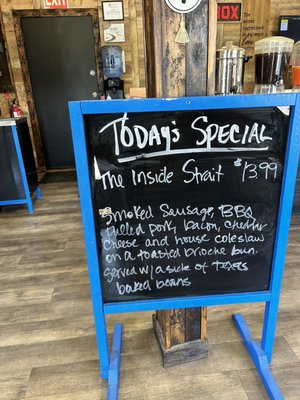 EXIT
BOX
Today's Special
The Inside Strait $13.99
Smoked Sausage, BBQ
pulled pork, bacon, cheddar
cheese and house coleslaw
on a toasted brioche bun.
served w/ a side of Texas
baked beans